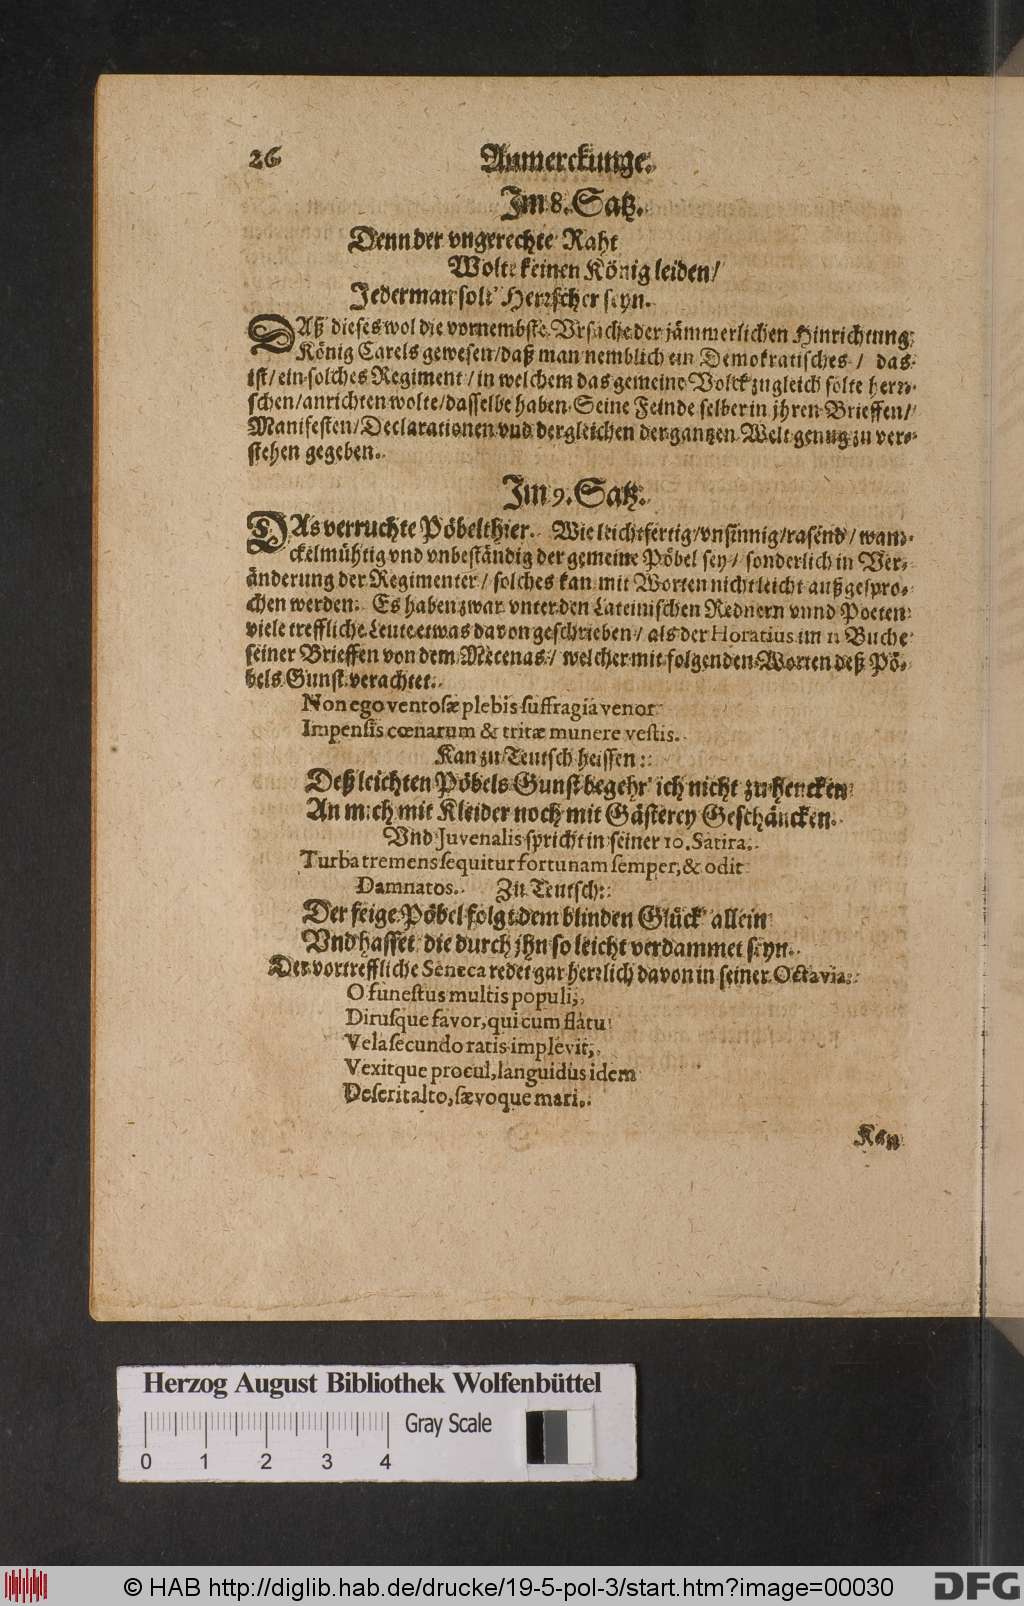 26 Anmerckunge.
Im 8. Satz.
Denn der vngerechte Raht
Wolte keinen König leiden/
Jederman solt' Herrscher seyn.
DAß dieses wol die vornembste Vrsache der jämmerlichen Hinrichtung
König Carels gewesen/ daß man nemblich ein Demokratisches/ das
ist/ ein solches Regiment/ in welchem das gemeine Volck zugleich solte herr-
schen/ anrichten wolte/ dasselbe haben Seine Feinde selber in jhren Brieffen/
Manifesten/ Declarationen vnd dergleichen der gantzen Welt genug zu ver-
stehen gegeben.
Im 9. Satz.
DAs verruchte Pöbelthier. Wie leichtfertig/ vnsinnig/ rasend/ wan-
ckelmühtig vnd vnbeständig der gemeine Pöbel sey/ sonderlich in Ver-
änderung der Regimenter/ solches kan mit Worten nicht leicht außgespro-
chen werden. Es haben zwar vnter den Lateinischen Rednern vnnd Poeten
viele treffliche Leute etwas davon geschrieben/ als der Horatius im 11 Buche
seiner Brieffen von dem Mecenas/ welcher mit folgenden Worten deß Pö-
bels Gunst verachtet.
Non ego ventosæ plebis suffragia venor
Impensis cœnarum & tritæ munere vestis.
Kan zu Teutsch heissen:
Deß leichten Pöbels Gunst begehr' ich nicht zu hencken
An mich mit Kleider noch mit Gästerey Geschäncken.
Vnd Juvenalis spricht in seiner 10. Satira.
Turba tremens sequitur fortunam semper, & odit
Damnatos. Zu Teutsch:
Der feige Pöbel folgt dem blinden Glück' allein
Vnd hasset die durch jhn so leicht verdammet seyn.
Der vortreffliche Seneca redet gar herrlich davon in seiner Octavia:
O funestus multis populi,
Dirusque favor, qui cum flatu
Vela secundo ratis implevit,
Vexitque procul, languidus idem
Deserit alto, sævoque mari.
Kan
Herzog August Bibliothek Wolfenbüttel
Gray Scale
0 1 2 3 4
© HAB http://diglib.hab.de/drucke/19-5-pol-3/start.htm?image=00030
DFG